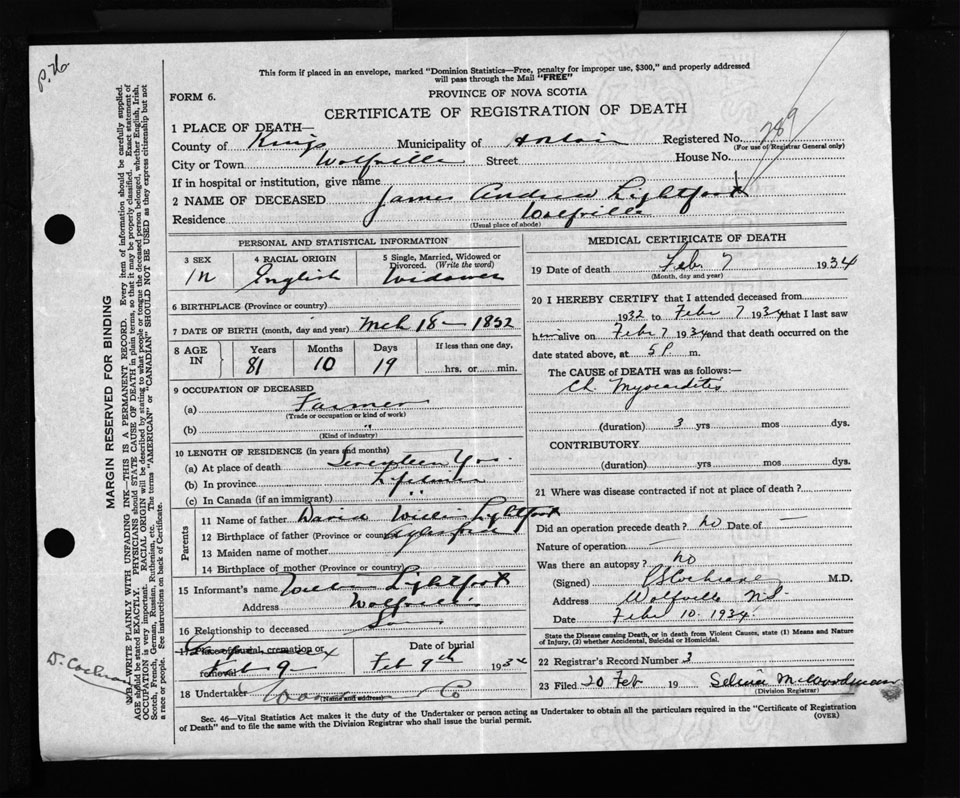 p. 76
This form if placed in an envelope, marked "Dominion Statistics—Free, penalty for improper use, $300," and properly addressed
will pass through the Mail "FREE"
FORM 6.
PROVINCE OF NOVA SCOTIA
CERTIFICATE OF REGISTRATION OF DEATH
1 PLACE OF DEATH—
County of Kings Municipality of Registered No. 289
(For use of Registrar General only)
City or Town Wolfville Street House No.
If in hospital or institution, give name
2 NAME OF DECEASED James Andrew Lightfoot
Residence Wolfville
(Usual place of abode)
PERSONAL AND STATISTICAL INFORMATION
3 SEX 4 RACIAL ORIGIN 5 Single, Married, Widowed or
Divorced. (Write the word)
M English Widower
6 BIRTHPLACE (Province or country)
7 DATE OF BIRTH (month, day and year) Mch 18 — 1852
8 AGE IN Years Months Days If less than one day,
81 10 19 hrs. or min.
9 OCCUPATION OF DECEASED
(a) Farmer
(Trade or occupation or kind of work)
(b) "
(Kind of industry)
10 LENGTH OF RESIDENCE (in years and months)
(a) At place of death Seventeen Yrs.
(b) In province Lifetime
(c) In Canada (if an immigrant) "
Parents
11 Name of father David Lightfoot
12 Birthplace of father (Province or country) Aylesford
13 Maiden name of mother
14 Birthplace of mother (Province or country)
15 Informant's name Lightfoot
Address Wolfville
16 Relationship to deceased Son
17 Place of burial, cremation or
removal Feb 9
Date of burial
Feb 9th 1934
18 Undertaker Woodman Co
(Name and address)
MEDICAL CERTIFICATE OF DEATH
19 Date of death Feb. 7 1934
(Month, day and year)
20 I HEREBY CERTIFY that I attended deceased from
1932 to Feb 7 1934 that I last saw
him alive on Feb 7 1934 and that death occurred on the
date stated above, at 5 P. m.
The CAUSE of DEATH was as follows:—
Ch. Myocarditis
(duration) 3 yrs mos dys.
CONTRIBUTORY
(duration) yrs. mos. dys.
21 Where was disease contracted if not at place of death?
Did an operation precede death? no Date of —
Nature of operation —
Was there an autopsy? no
(Signed) Cochrane M.D.
Address Wolfville N.S.
Date Feb 10. 1934.
State the Disease causing Death, or in death from Violent Causes, state (1) Means and Nature
of Injury, (2) whether Accidental, Suicidal or Homicidal.
22 Registrar's Record Number 3
23 Filed 20 Feb 19 Selina M. Woodman
(Division Registrar)
Sec. 46—Vital Statistics Act makes it the duty of the Undertaker or person acting as Undertaker to obtain all the particulars required in the "Certificate of Registration
of Death" and to file the same with the Division Registrar who shall issue the burial permit.
(OVER)
MARGIN RESERVED FOR BINDING
N.B.—WRITE PLAINLY WITH UNFADING INK—THIS IS A PERMANENT RECORD. Every item of information should be carefully supplied.
AGE should be stated EXACTLY. PHYSICIANS should STATE CAUSE OF DEATH in plain terms, so that it may be properly classified. Exact statement of
OCCUPATION is very important. RACIAL ORIGIN will be described by stating to what people or tongue the deceased person belonged, whether English, Irish,
Scotch, French, German, Russian, Ruthenian, etc. The terms "AMERICAN" or "CANADIAN" SHOULD NOT BE USED as they express citizenship but not
a race or people. See instructions on back of Certificate.
D. Cochran